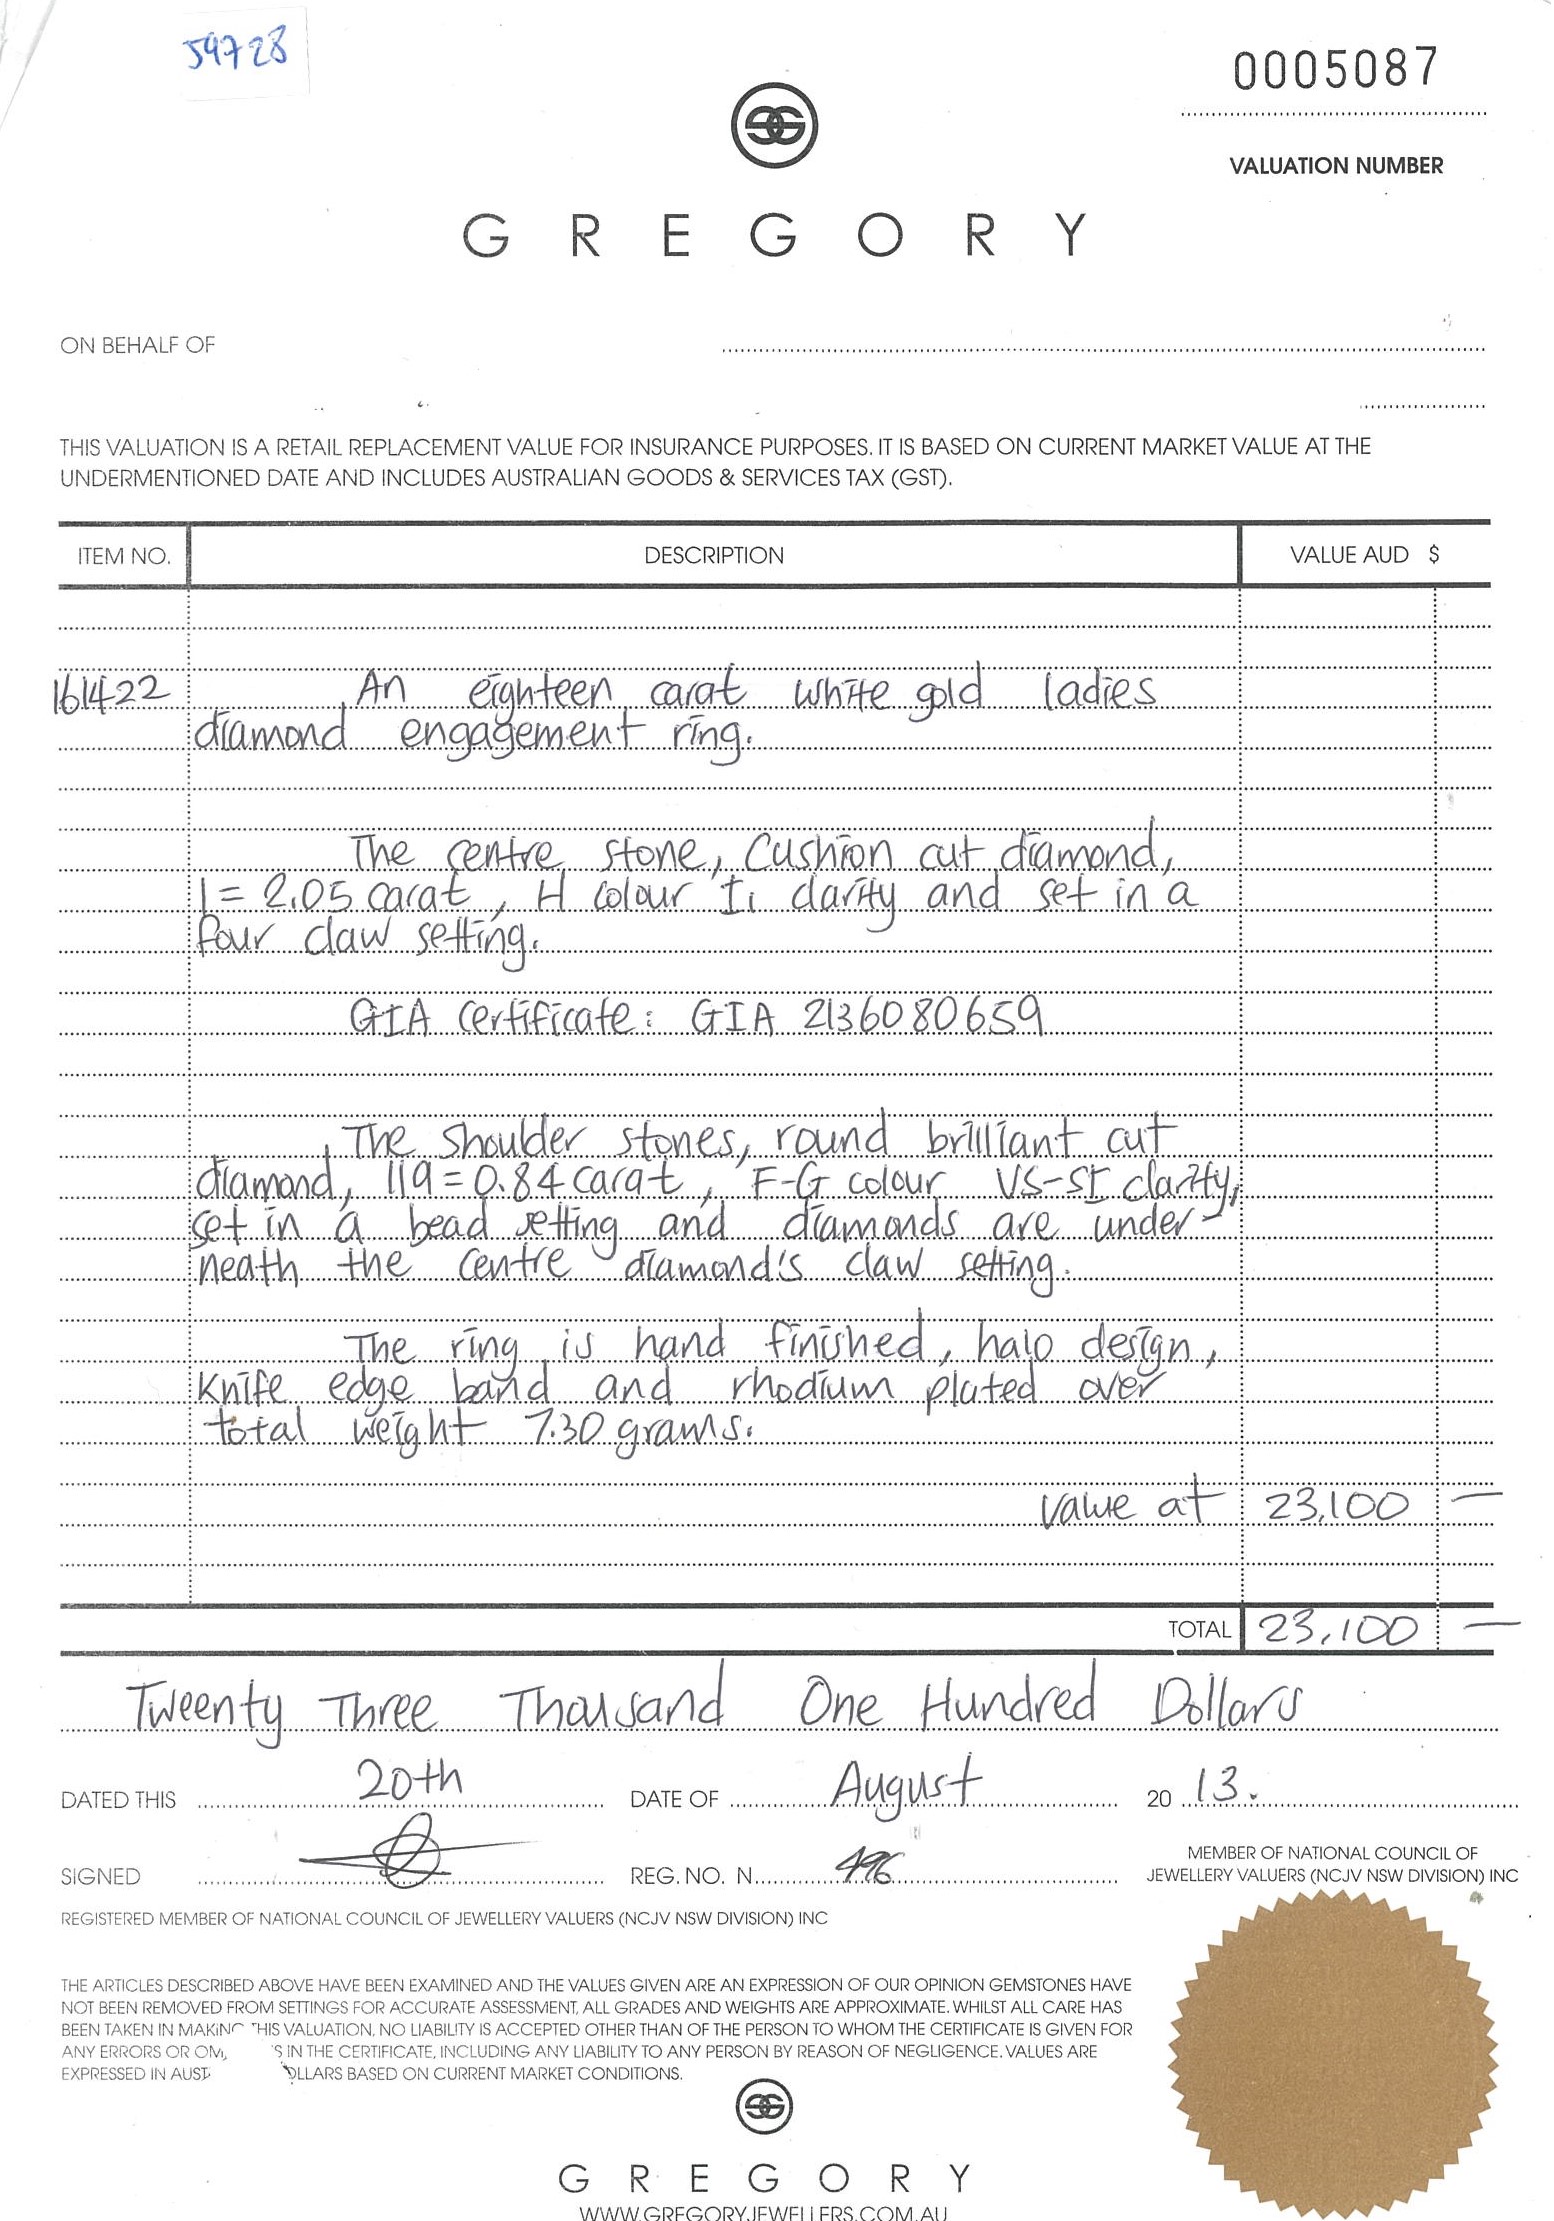 59728
0005087
VALUATION NUMBER
GREGORY
ON BEHALF OF
THIS VALUATION IS A RETAIL REPLACEMENT VALUE FOR INSURANCE PURPOSES. IT IS BASED ON CURRENT MARKET VALUE AT THE
UNDERMENTIONED DATE AND INCLUDES AUSTRALIAN GOODS & SERVICES TAX (GST).
ITEM NO. DESCRIPTION VALUE AUD $
161422 An eighteen carat white gold ladies
diamond engagement ring.
The centre stone, Cushion cut diamond,
1 = 2.05 carat, H colour I1 clarity and set in a
four claw setting.
GIA Certificate: GIA 2136080659
The shoulder stones, round brilliant cut
diamond, 119 = 0.84 carat, F-G colour VS-SI clarity,
set in a bead setting and diamonds are under-
neath the centre diamond's claw setting.
The ring is hand finished, halo design,
Knife edge band and rhodium plated over
total weight 7.30 grams.
value at 23,100 —
TOTAL 23,100 —
Tweenty Three Thousand One Hundred Dollars
DATED THIS 20th DATE OF August 20 13.
SIGNED REG. NO. N 496
MEMBER OF NATIONAL COUNCIL OF
JEWELLERY VALUERS (NCJV NSW DIVISION) INC
REGISTERED MEMBER OF NATIONAL COUNCIL OF JEWELLERY VALUERS (NCJV NSW DIVISION) INC
THE ARTICLES DESCRIBED ABOVE HAVE BEEN EXAMINED AND THE VALUES GIVEN ARE AN EXPRESSION OF OUR OPINION GEMSTONES HAVE
NOT BEEN REMOVED FROM SETTINGS FOR ACCURATE ASSESSMENT, ALL GRADES AND WEIGHTS ARE APPROXIMATE. WHILST ALL CARE HAS
BEEN TAKEN IN MAKING THIS VALUATION, NO LIABILITY IS ACCEPTED OTHER THAN OF THE PERSON TO WHOM THE CERTIFICATE IS GIVEN FOR
ANY ERRORS OR IN THE CERTIFICATE, INCLUDING ANY LIABILITY TO ANY PERSON BY REASON OF NEGLIGENCE. VALUES ARE
EXPRESSED IN BASED ON CURRENT MARKET CONDITIONS.
GREGORY
WWW.GREGORYJEWELLERS.COM.AU